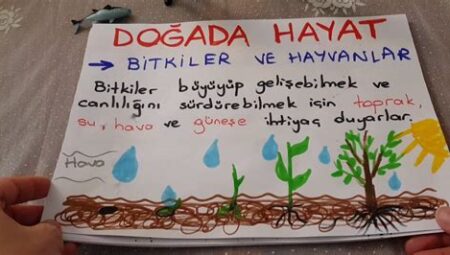 DOĞADA HAYAT
→ BİTKİLER VE HAYVANLAR
Bitkiler büyüyüp gelişebilmek ve
canlılığını sürdürebilmek için toprak,
su, hava ve güneşe ihtiyaç duyarlar.
Hava